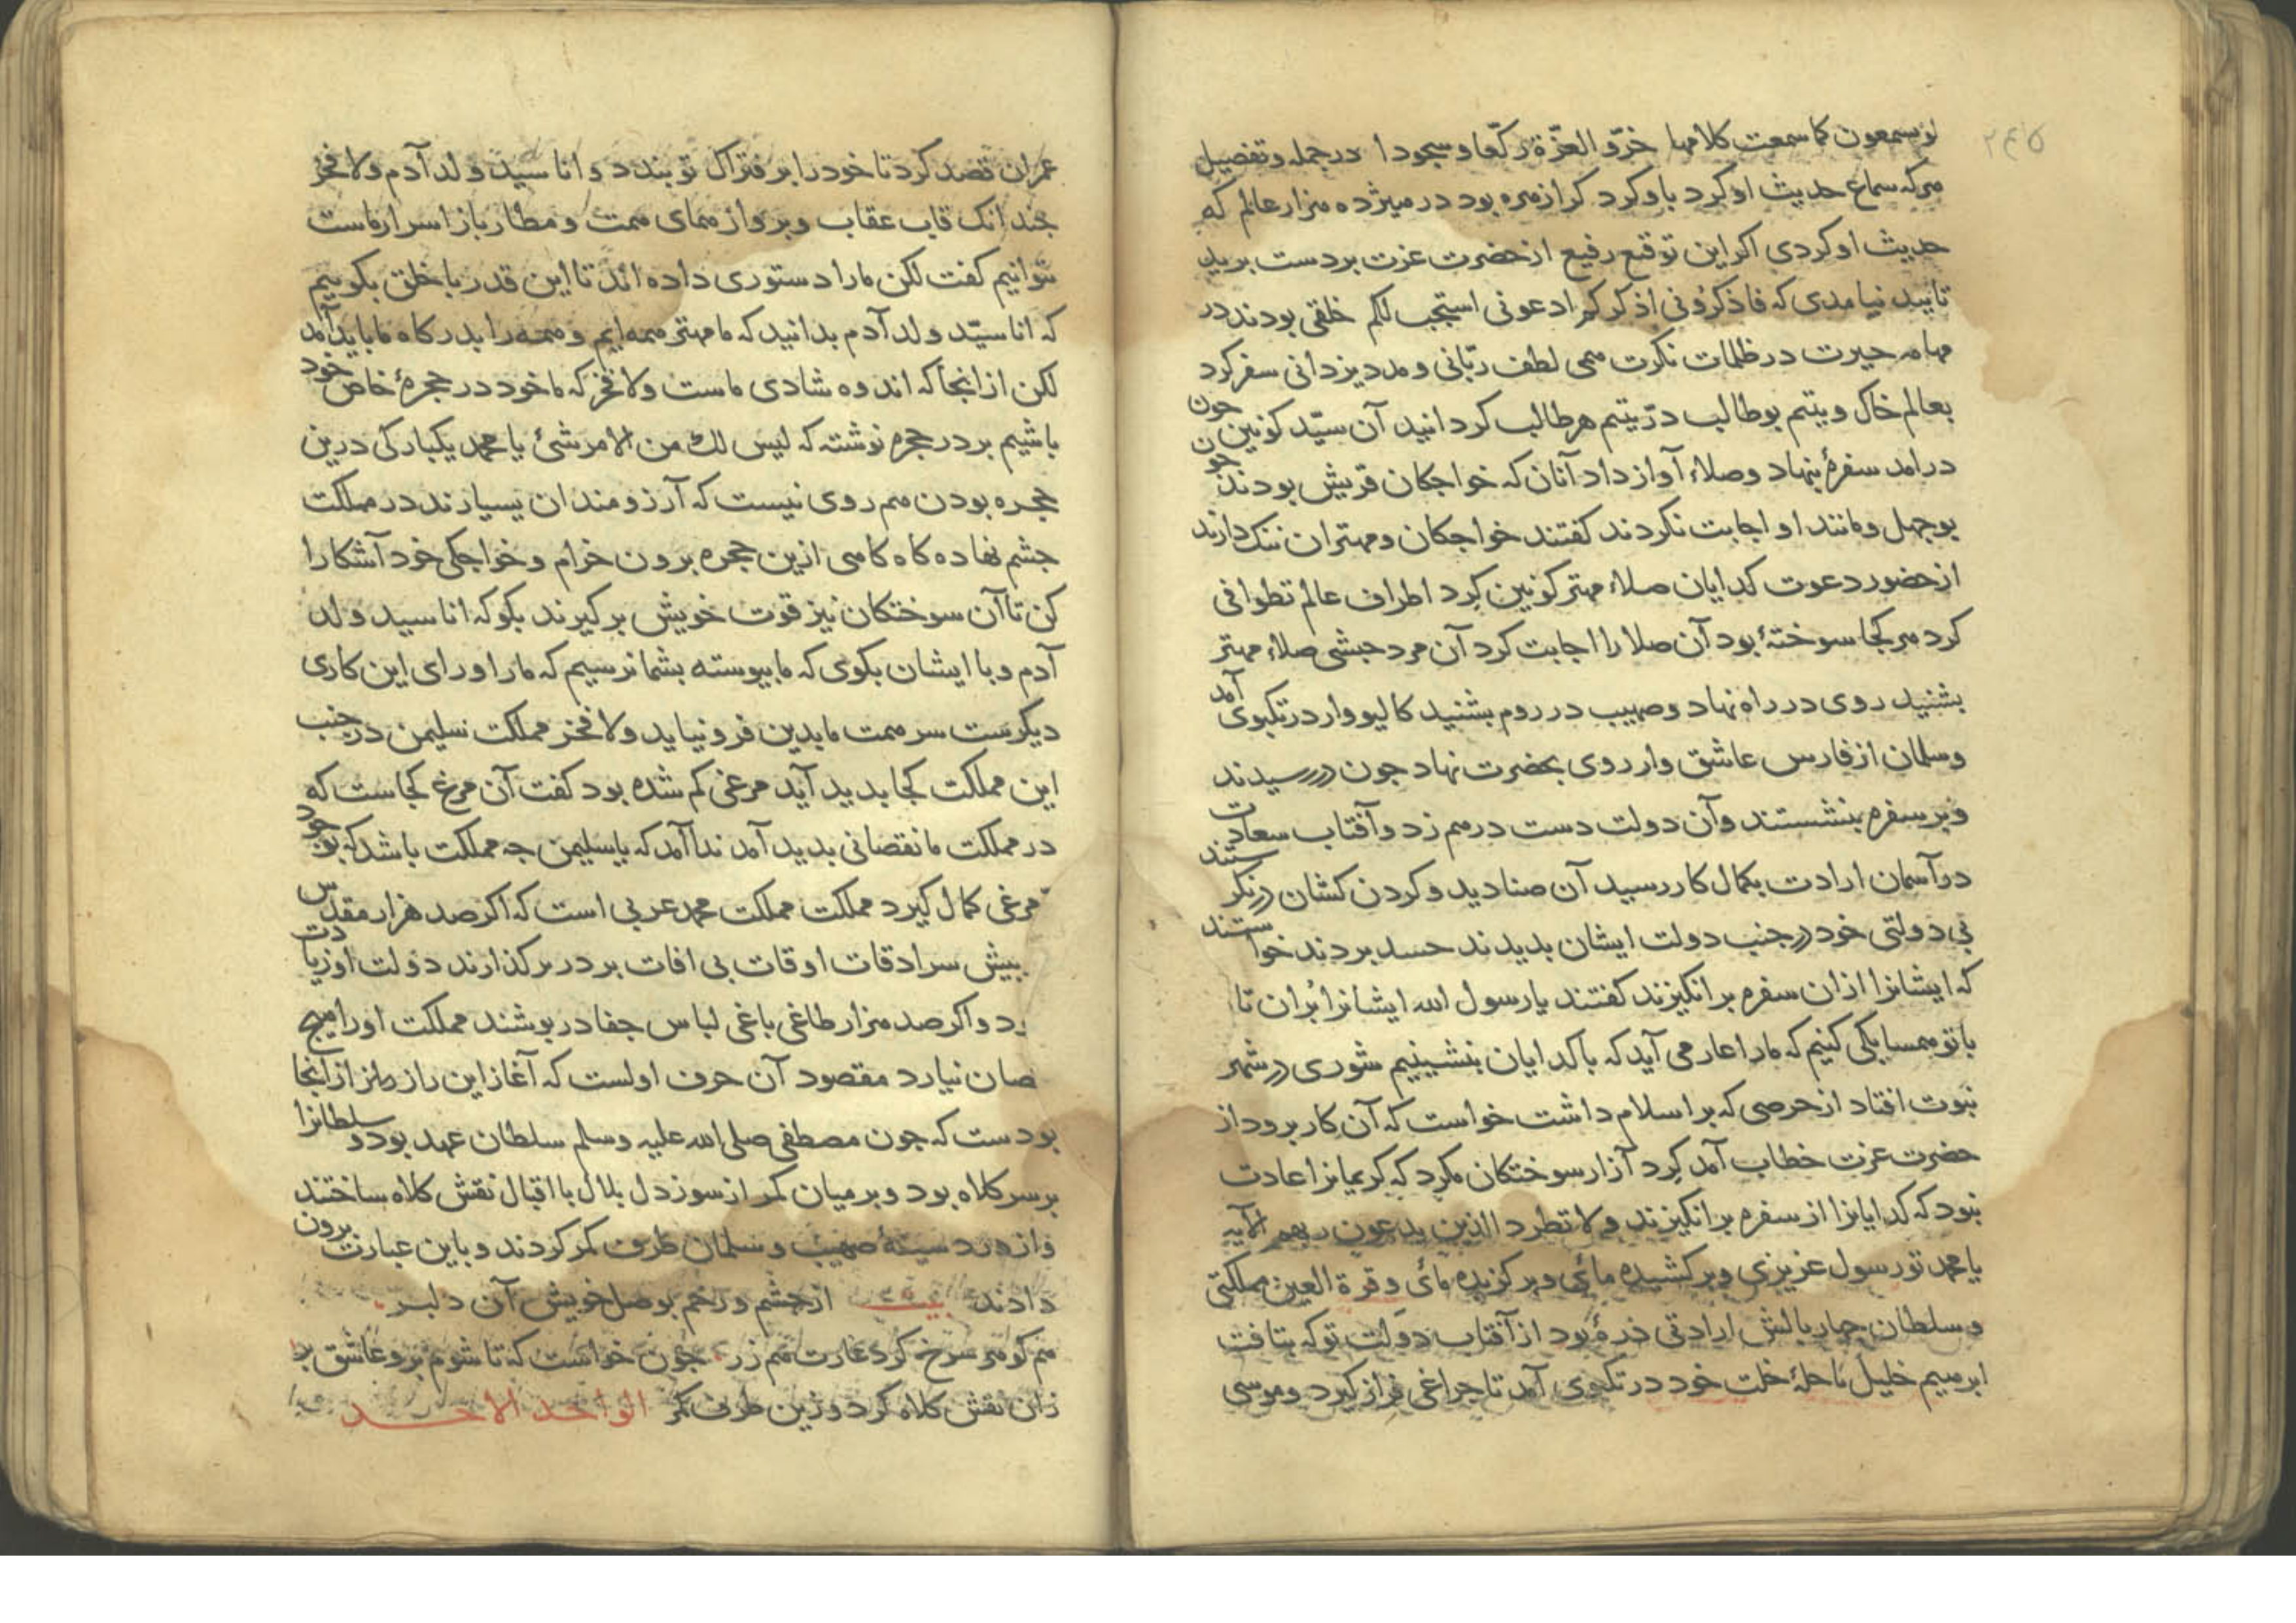 ۲۴۵
لو یسمعون کما سمعت کلامها خرّوا لعزّة رکّعا وسجودا در جمله وتفصیل
هرکه سماع حدیث او کرد باو کرد کرا زهره بود در هیژده هزار عالم که
حدیث او کردی اکر این توقیع رفیع از حضرت عزت بر دست برید
تایید نیامدی که فاذکرونی اذکرکم ادعونی استجب لکم خلقی بودند در
مهامه حیرت در ظلمات نکرت همی لطف ربّانی ومدد یزدانی سفر کرد
بعالم خاک ویتیم بوطالب درّ یتیم هر طالب کردانید آن سیّد کونین چون
درامد سفرهٔ بنهاد وصلاء آواز داد آنان که خواجکان قریش بودند چون
بوجهل ومانند او اجابت نکردند کفتند خواجکان ومهتران ننک دارند
از حضور دعوت کدایان صلاء مهتر کونین کرد اطراف عالم تطوافی
کرد هر کجا سوختهٔ بود آن صلا را اجابت کرد آن مرد حبشی صلاء مهتر
بشنید روی در راه نهاد وصهیب در روم بشنید کالیووار در تکبوی آمد
وسلمان از فارس عاشق وار روی بحضرت نهاد جون در رسیدند
وبر سفره بنشستند وآن دولت دست درهم زد وآفتاب سعادت
در آسمان ارادت بکمال کار رسید آن صنادید وکردن کشان درنکرستند
بی دولتی خود در جنب دولت ایشان بدیدند حسد بردند خواستند
که ایشانرا ازان سفره برانکیزند کفتند یا رسول الله ایشانرا بُران تا
با تو همسایکی کنیم که مارا عار می آید که با کدایان بنشینیم شوری در شهر
نبوت افتاد از حرصی که بر اسلام داشت خواست که آن کار برود از
حضرت عزت خطاب آمد کرد آزار سوختکان مکرد که کریمانرا عادت
نبود که کدایانرا از سفره برانکیزند ولا تطرد الذین یدعون ربهم الآیه
یا محمد تو رسول عزیزی وبرکشیده مائی وبرکزیده مائی وقرة العین مملکتی
وسلطان چهار بالش ارادتی ذرهٔ بود از آفتاب دولت تو که بتافت
ابرهیم خلیل با حلهٔ خلت خود در تکبوی آمد تا جراغی فراز کیرد وموسی
عمران قصد کرد تا خود را بر فتراک تو بندد وانا سید ولد آدم ولا فخر
جندانک قاب عقاب وبرواز همای همت ومطار باز اسرار ماست
نتوانیم کفت لکن مارا دستوری داده اند تا این قدر با خلق بکوییم
که انا سیّد ولد آدم بدانید که ما مهتر همه ایم وهمه را بدرکاه ما باید آمد
لکن از انجا که اندوه شادی ماست ولا فخر که ما خود در حجرهٔ خاص خود
باشیم بر در حجره نوشته که لیس لک من الامر شئ یا محمد یکبارکی درین
حجره بودن هم روی نیست که آرزومندان بسیارند در مملکت
جشم نهاده کاه کاهی ازین حجره برون خرام وخواجکی خود آشکارا
کن تا آن سوختکان نیز قوت خویش برکیرند بکو که انا سید ولد
آدم وبا ایشان بکوی که ما بیوسته بشما نرسیم که مارا ورای این کاری
دیکرست سر همت ما بدین فرو نیاید ولا فخر مملکت سلیمن در جنب
این مملکت کجا بدید آید مرغی کم شده بود کفت آن مرغ کجاست که
در مملکت ما نقصانی بدید آمد ندا آمد که یا سلیمن جه مملکت باشد که بوجود
مرغی کمال کیرد مملکت مملکت محمد عربی است که اکر صد هزار مقدس
بیش سرادقات اوقات بی افات بر در برکذارند دولت او زیادت
رد واکر صد هزار طاغی باغی لباس جفا دربوشند مملکت اورا هیچ
صان نیارد مقصود آن حرف اولست که آغاز این راز ما از انجا
بودست که جون مصطفی صلی الله علیه وسلم سلطان عهد بود وسلطانرا
بر سر کلاه بود وبر میان کمر از سوز دل بلال با اقبال نقش کلاه ساختند
واز درد سینهٔ صهیب وسلمان طرف کمر کردند وباین عبارت برون
دادند بیت از جشم ورخم بوصل خویش آن دلبر
هم کوهر سرخ کرد غارت هم زر جون خواست که تا شوم برو عاشق تر
زان نقش کلاه کرد وزین طرف کمر الواحد الاحد